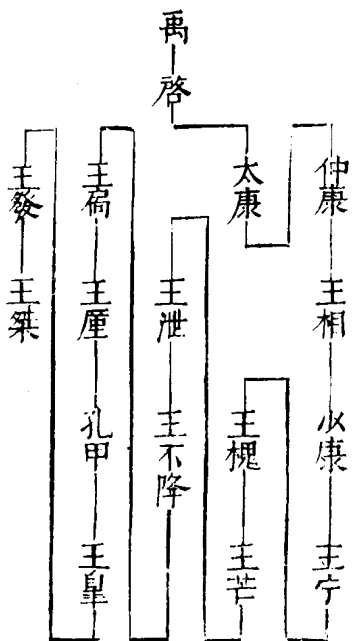 禹
啓
太康
仲康
王相
少康
王宁
王槐
王芒
王泄
王不降
王扃
王厪
孔甲
王皇
王發
王桀